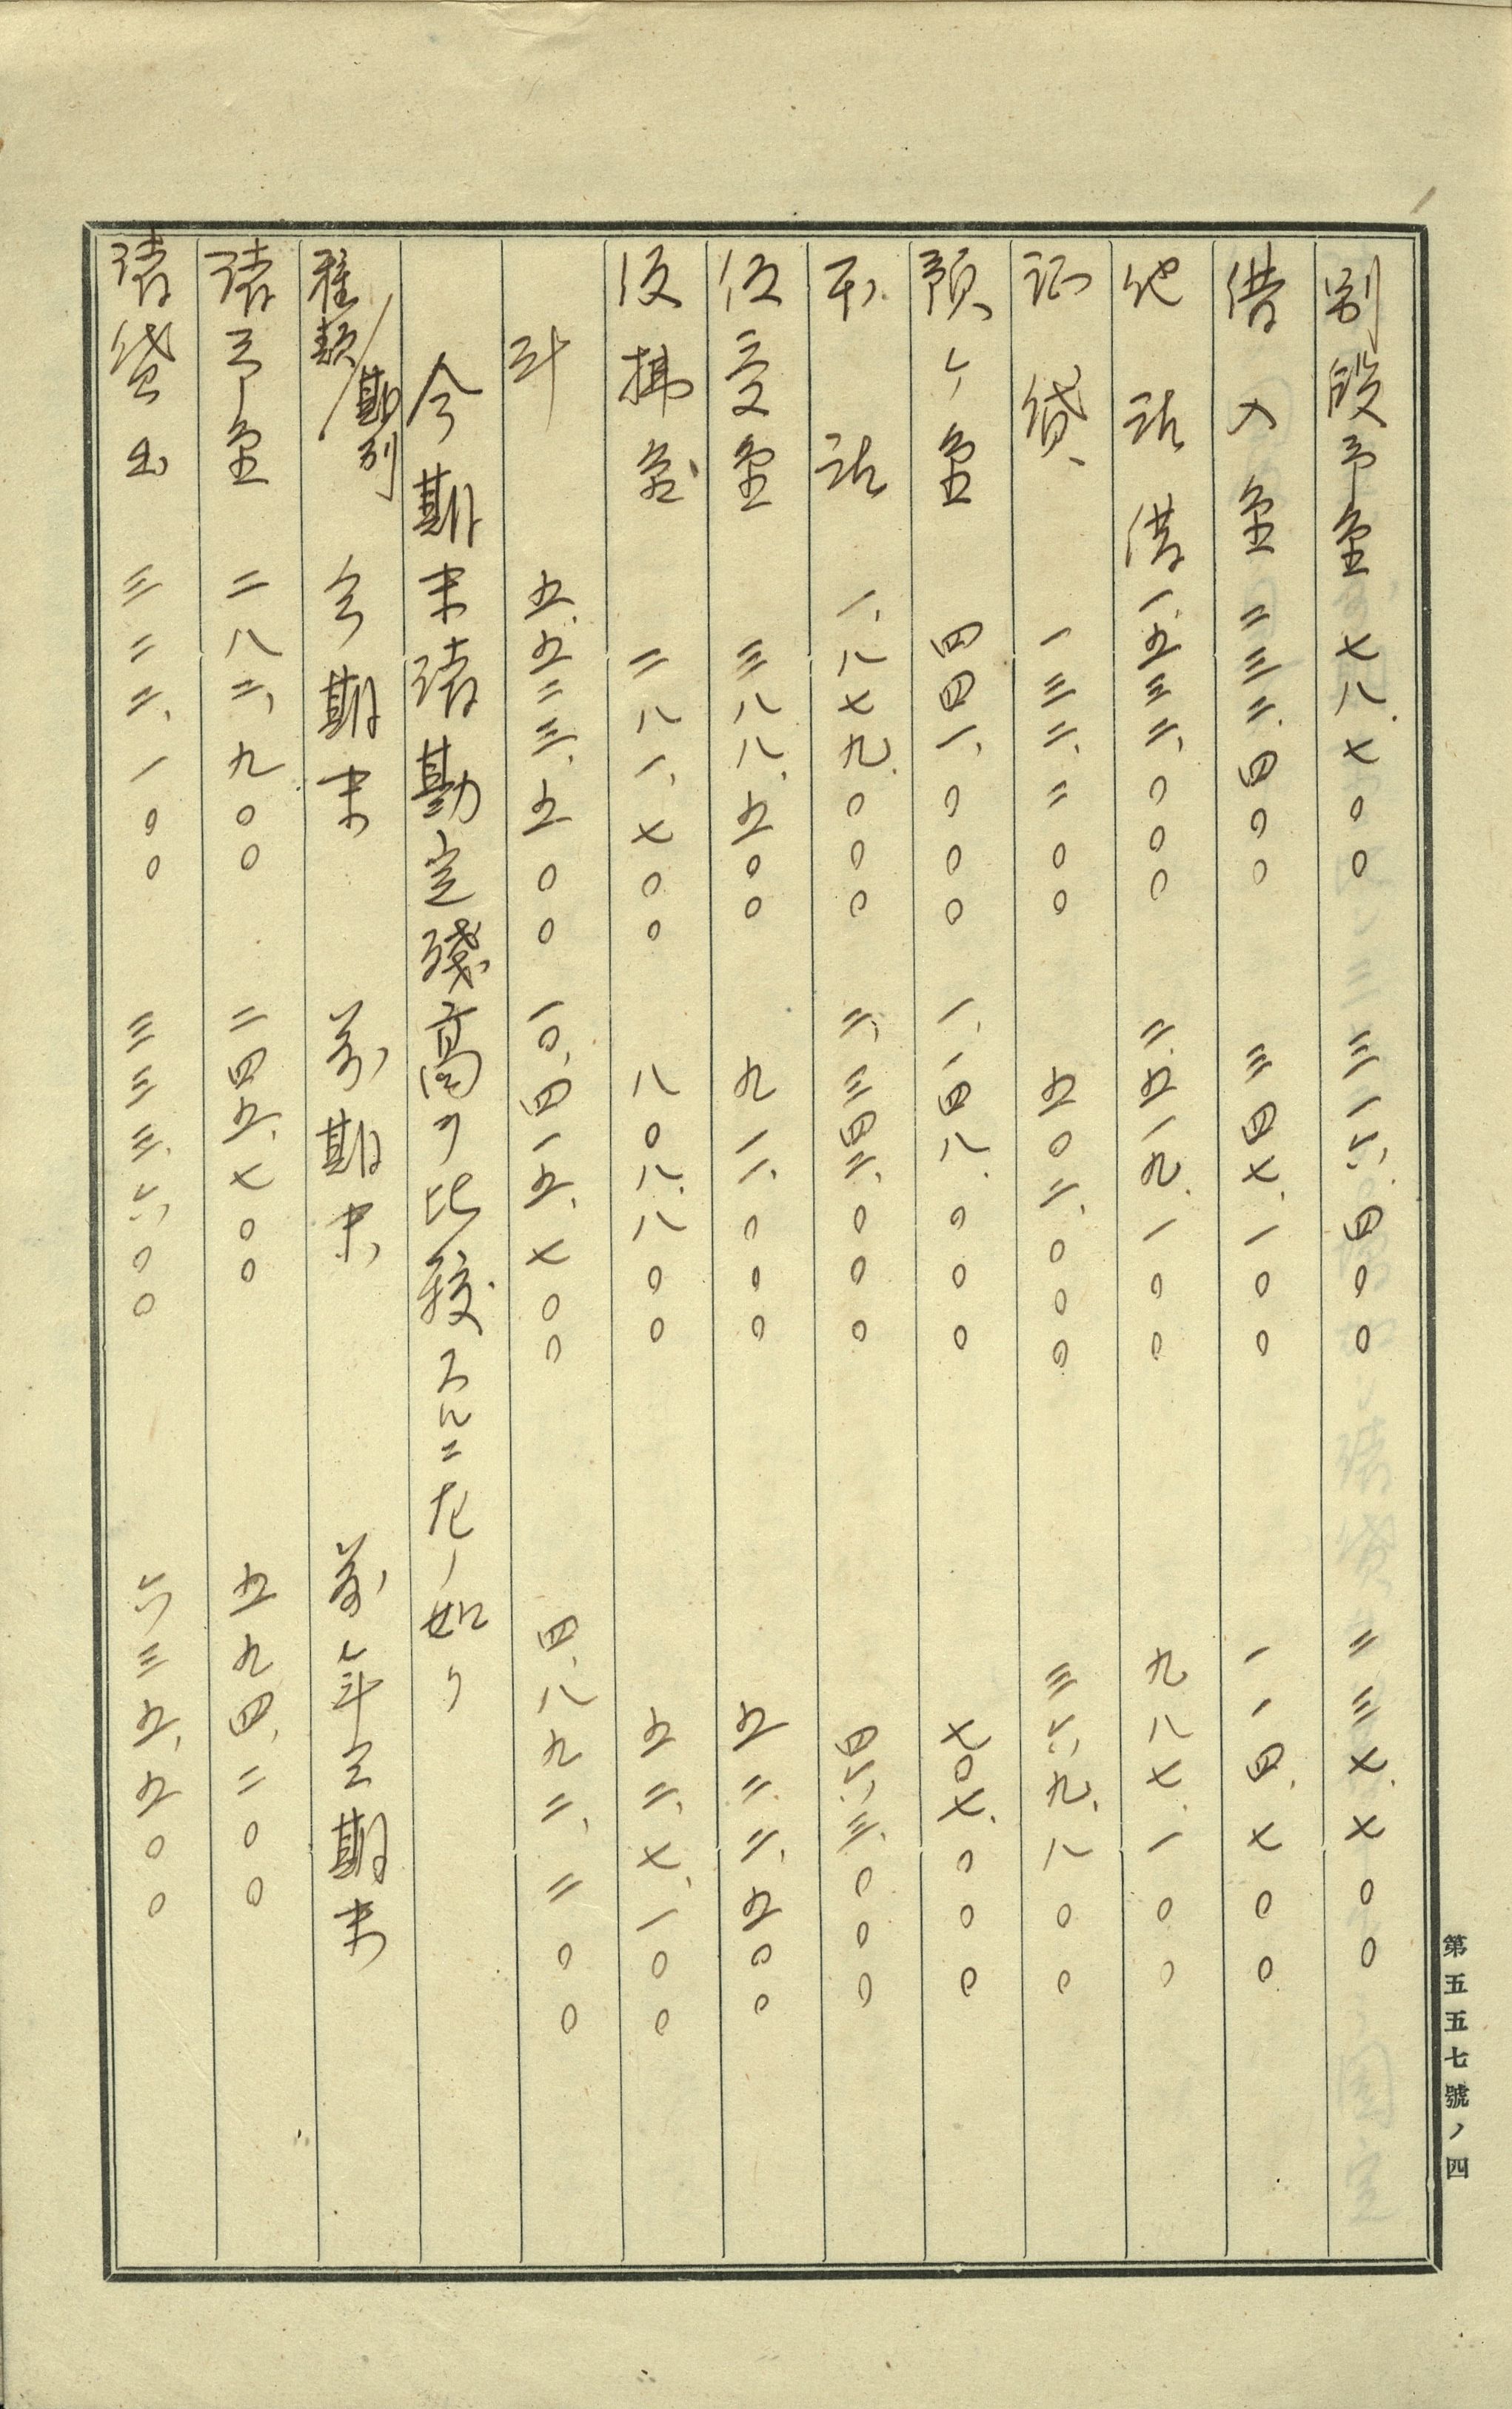 別段予金 七八、七〇〇 三一六、四〇〇 二三七、七〇〇
借入金 二三二、四〇〇 三四七、一〇〇 一一四、七〇〇
他店借 一、五三二、〇〇〇 二、五一九、一〇〇 九八七、一〇〇
証貸 一三二、二〇〇 五〇二、〇〇〇 三六九、八〇〇
預ケ金 四四一、〇〇〇 一、一四八、〇〇〇 七〇七、〇〇〇
本店 一、八七九、〇〇〇 二、三四二、〇〇〇 四六三、〇〇〇
仮受金 三八八、五〇〇 九一一、〇〇〇 五二二、五〇〇
仮拂金 二八一、七〇〇 八〇八、八〇〇 五二七、一〇〇
計 五、五二三、五〇〇 一〇、四一五、七〇〇 四、八九二、二〇〇
今期末諸勘定殘高ヲ比較スルニ左ノ如シ
種類/期別 今期末 前期末 前年仝期末
諸予金 二八二、九〇〇 二四五、七〇〇 五九四、二〇〇
諸貸出 三二二、一〇〇 三三三、六〇〇 六三五、五〇〇
第五五七號ノ四